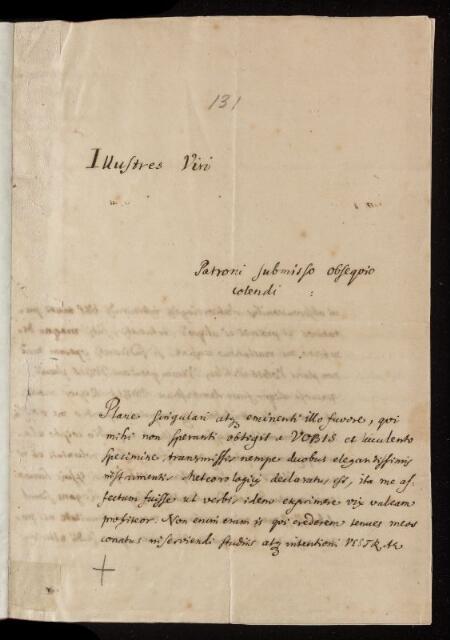 131
Illustres Viri
Patroni submisso obseqvio
colendi :
Plane singulari atq eminenti illo favore, qvi
mihi non speranti obtigit a VOBIS et luculento
specimine, transmissis nempe duobus elegandissimis
instrumentis Meteorologicis declaratus est, ita me af,
fectum fuisse ut verbis idem exprimere vix valeam
profiteor. Non enim eram is qvi crederem tenues meos
conatus inserviendi studiis atq intentioni VESTRAE